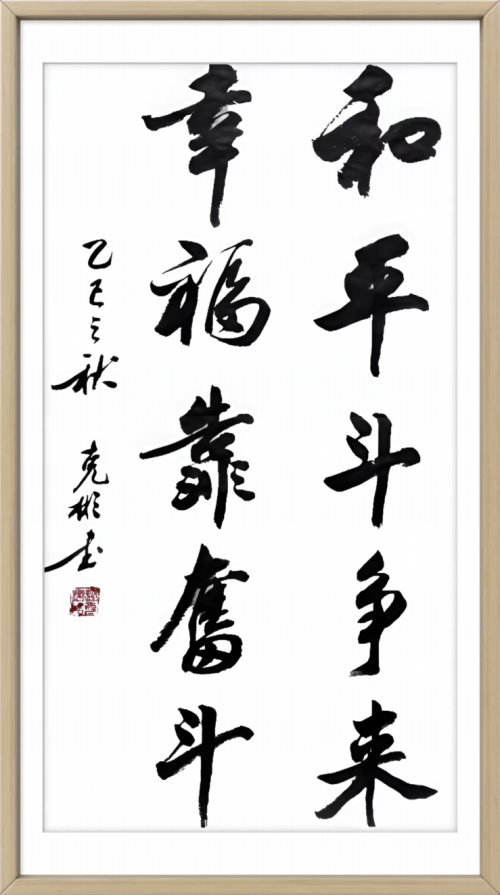 和平斗争来
幸福靠奋斗
乙巳之秋 克彬书